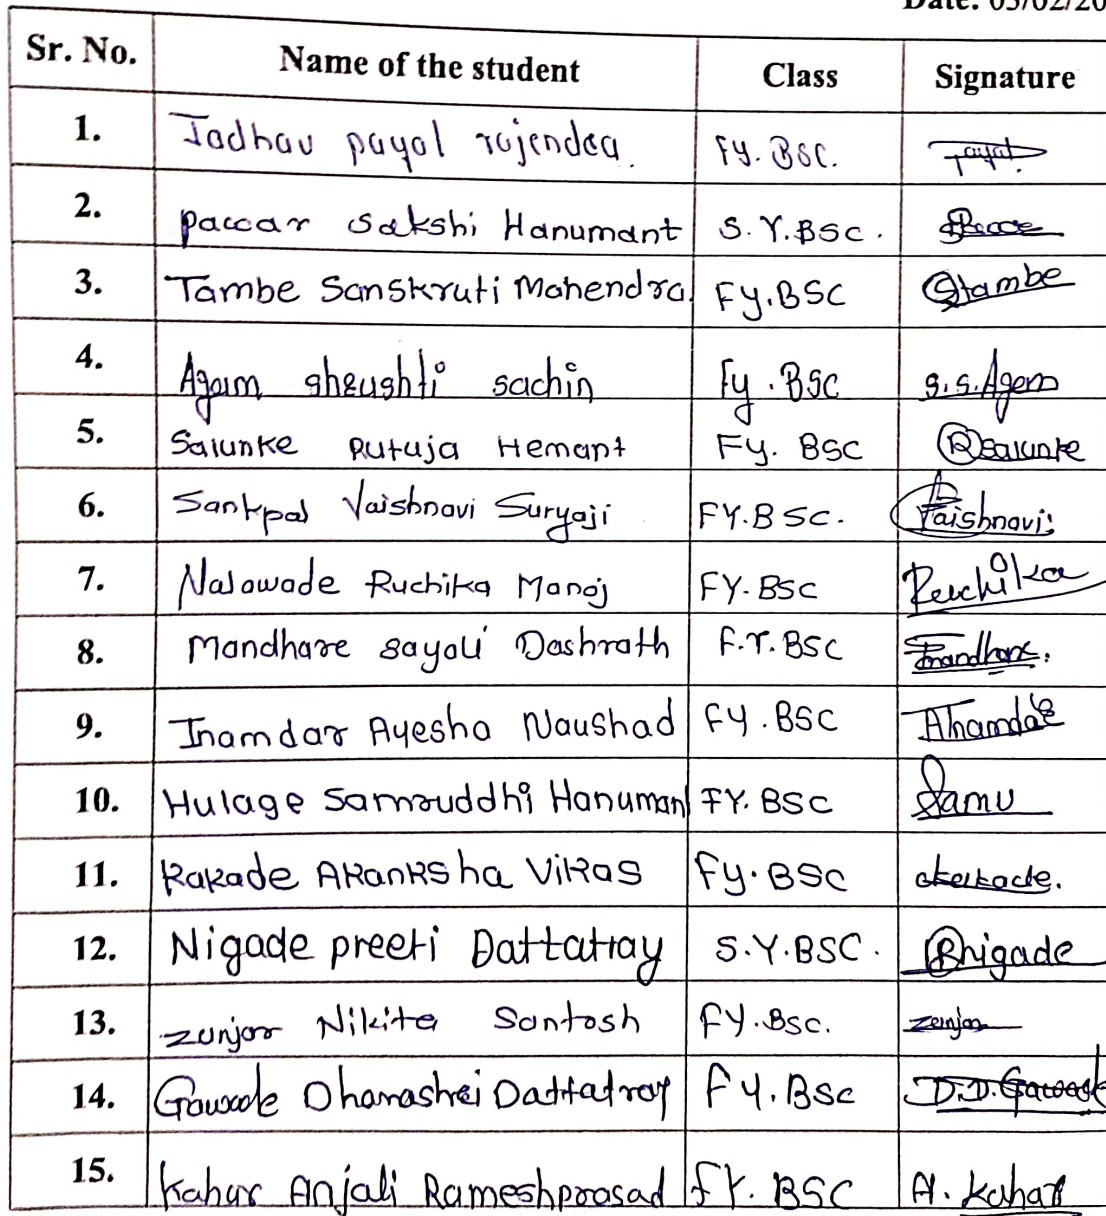 Date: 03/02/20
Sr. No. Name of the student Class Signature
1. Jadhav payal rajendra. Fy. BSC. Payal.
2. pawar Sakshi Hanumant S.Y.BSC.
3. Tambe Sanskruti Mahendra. Fy.BSC Stambe
4. Agam shrushti sachin Fy.BSC S.S.Agam
5. Salunke Rutuja Hemant Fy. BSC Rsalunke
6. Sankpal Vaishnavi Suryaji FY.BSC. Vaishnavi
7. Nalawade Ruchika Manoj FY.BSC Ruchika
8. Mandhare sayali Dashrath F.Y.BSC Smandhare.
9. Inamdar Ayesha Naushad FY.BSC AInamdar
10. Hulage Samruddhi Hanuman FY.BSC Samu
11. Kakade Akanksha Vikas Fy.BSC akakade.
12. Nigade preeti Dattatray S.Y.BSC. Pnigade
13. zunjar Nikita Santosh FY.BSC. zunjar
14. Gawade Dhanashri Dattatray FY.BSc D.D.Gawade
15. Kahar Anjali Rameshprasad FY.BSC A. Kahar